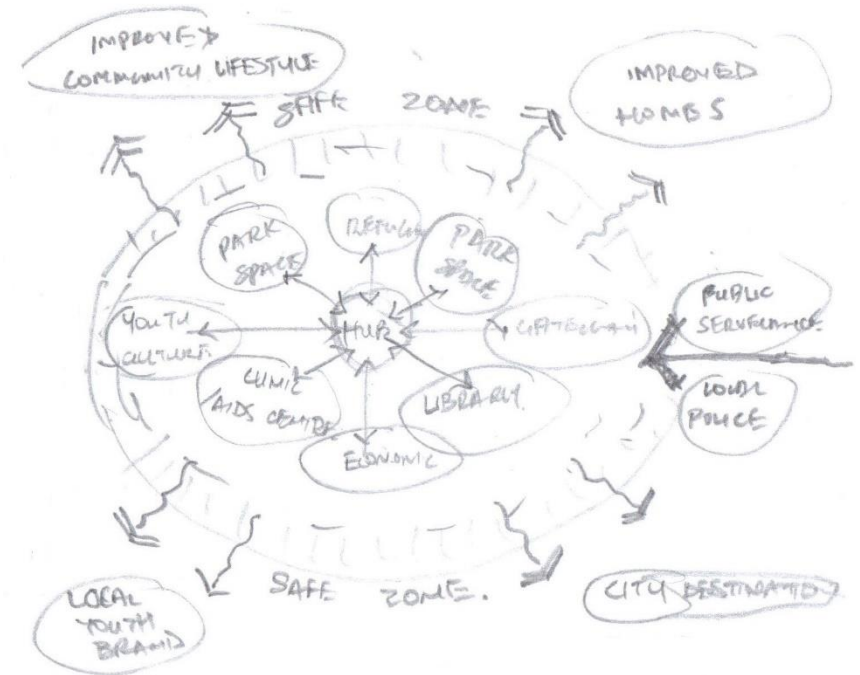 IMPROVED
COMMUNITY LIFESTYLE
SAFE ZONE
IMPROVED
HOMES
PARK
SPACE
PARK
SPACE
YOUTH
CULTURE
HUB
PUBLIC
SERVELANCE
CLINIC
/AIDS CENTRE
LIBRARY
LOCAL
POLICE
ECONOMIC
SAFE ZONE.
LOCAL
YOUTH
BRAND
CITY DESTINATION